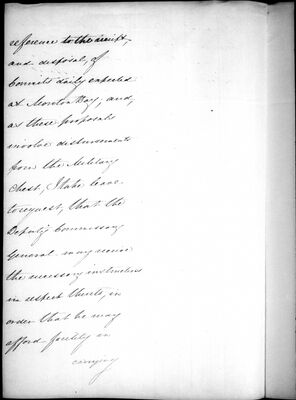 reference to the receipt,
and disposal, of
Convicts daily expected
at Moreton Bay; and,
as these proposals
involve disbursements
from the Military
Chest, I take leave
to request, that the
Deputy Commissary
General may receive
the necessary instructions
in respect thereto, in
order that he may
afford facility in
carrying